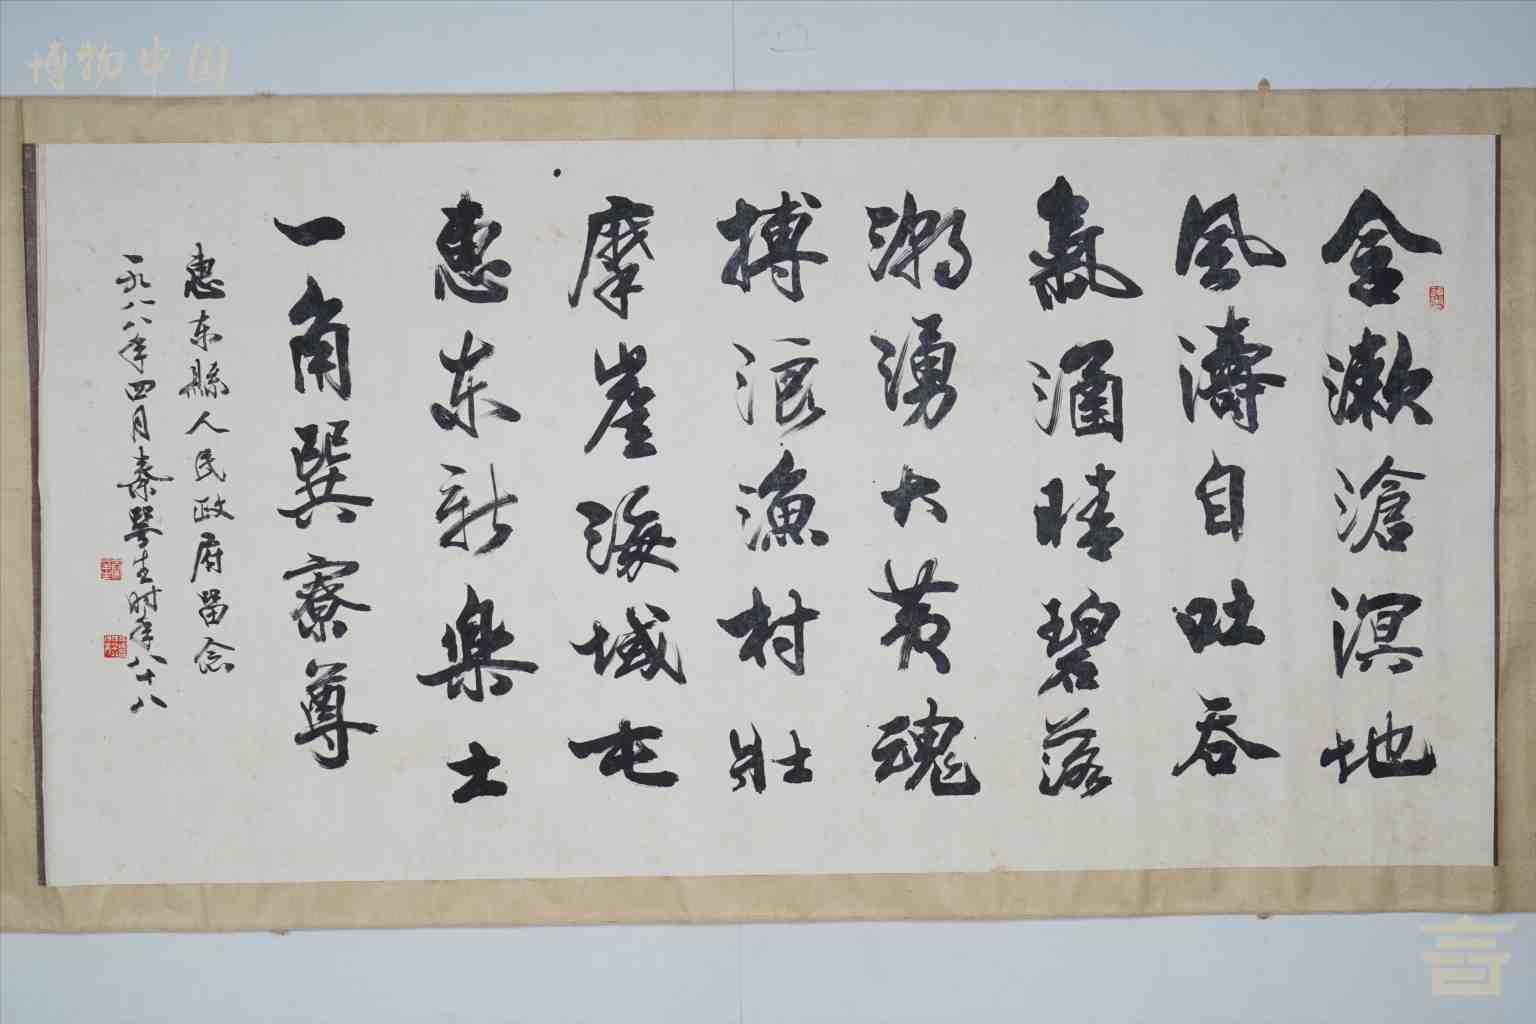 博物中国
含漱滄溟地
風濤自吐吞
氣涵晴碧落
潮湧大黄魂
搏浪漁村壯
摩崖海域屯
惠东新樂土
一角巽寮尊
惠东縣人民政府留念
一九八八年四月秦咢生时年八十八